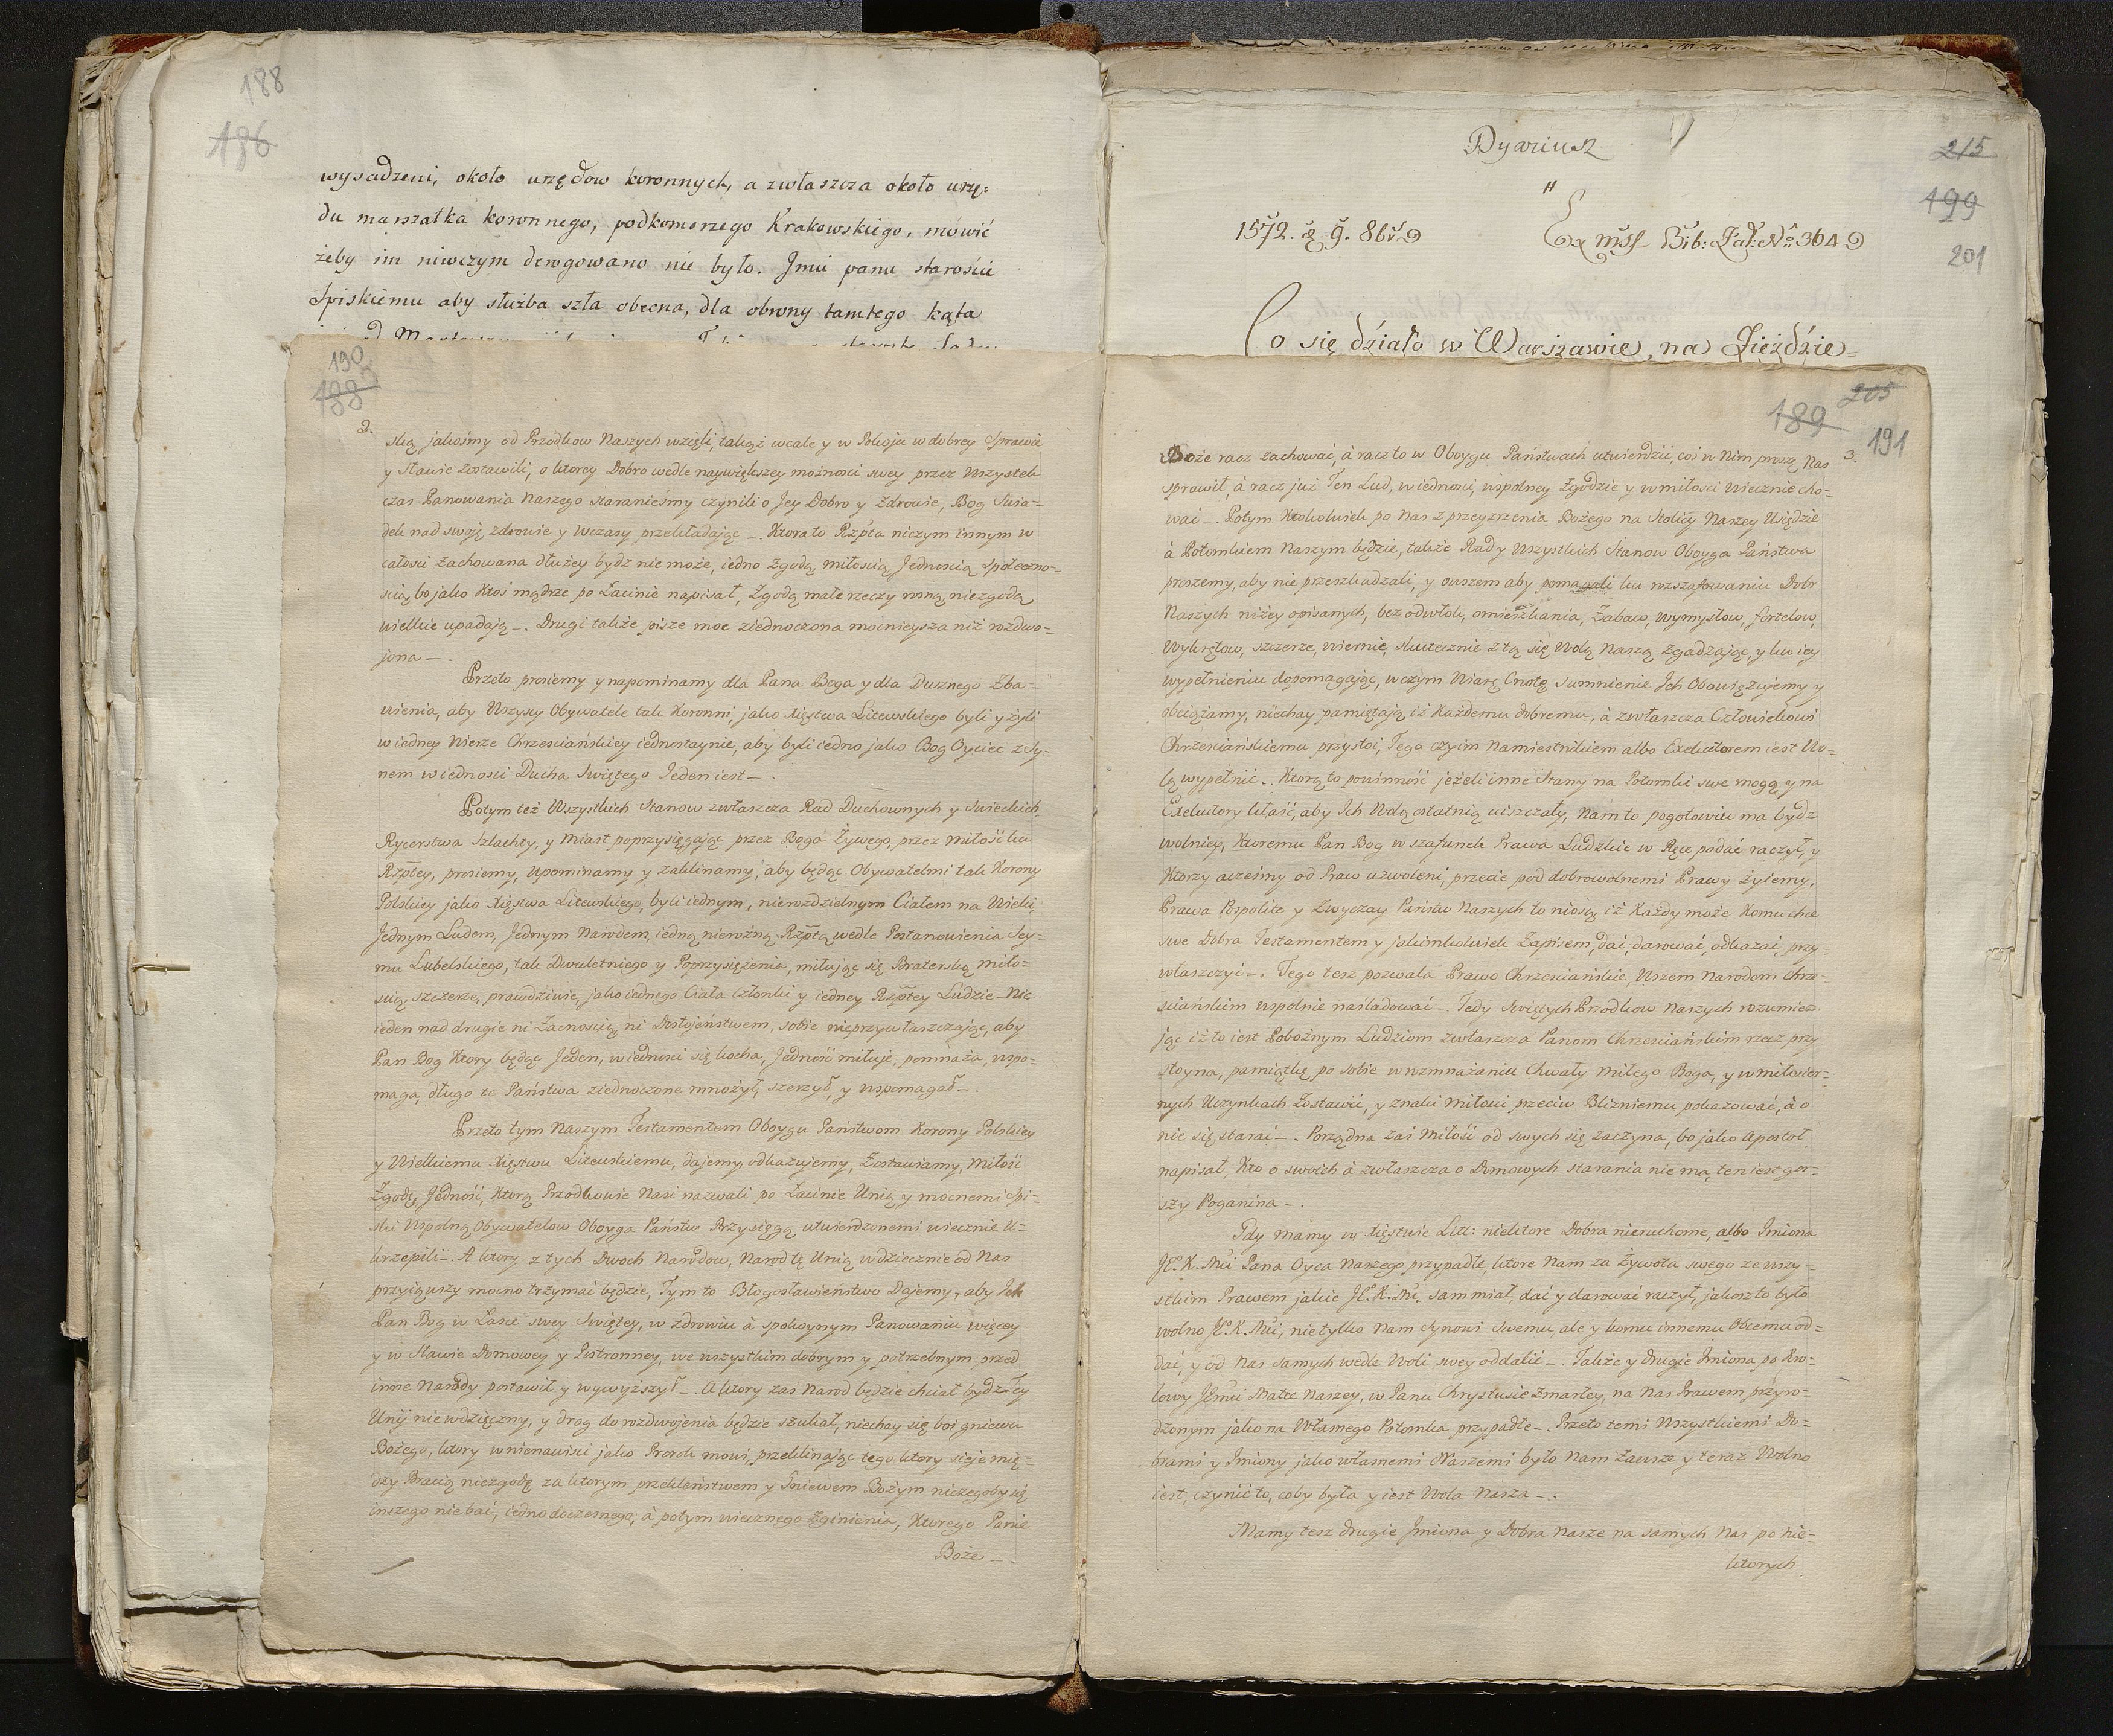 188
186
wysadzeni, około urzędow koronnych, a zwłaszcza około urzę:
du marszałka koronnego, podkomorzego Krakowskiego, mówić
żeby im niwczym derogowano nie było. Jmci panu staroście
Spiskiemu aby służba szła obecna, dla obrony tamtego kąta
190
188
2.
ską jakośmy od Przodkow Naszych wzięli, takąż wcale y w Pokoju w dobrey Sprawie
y Sławie zostawili, o ktorey Dobro wedle naywiększey możnosci swey przez Wszystek
czas Panowania Naszego staranieśmy czynili o Jey Dobro y Zdrowie, Bog Swia-
dek nad swoje zdrowie y wczasy przekładając –. Ktora to Rzpta niczym innym w
całosci zachowana dłużey bydz nie może, iedno zgodą, miłoscią, Jednoscią społeczno-
scią, bo jako Ktoś mądrze po Łacinie napisał, Zgodą małe rzeczy rosną, niezgodą
wielkie upadają –. Drugi także pisze moc ziednoczona mocnieysza niż rozdwo-
jona –.
Przeto prosiemy y napominamy dla Pana Boga y dla Dusznego Zba-
wienia, aby Wszyscy Obywatele tak Koronni, jako Xięstwa Litewskiego byli y żyli
w iedney Wierze Chrzesciańskiey iednostaynie, aby byli iedno jako Bog Oyciec z Sy-
nem w iednosci Ducha Swiętego Jeden iest –.
Potym też Wszystkich Stanow zwłaszcza Rad Duchownych y Swieckich,
Rycerstwa Szlachty, y Miast poprzysięgając przez Boga Żywego, przez Miłość ku
Rzptey, prosiemy, upominamy y zaklinamy, aby będąc Obywatelmi tak Korony
Polskiey jako Xięstwa Litewskiego, byli iednym, nierozdzielnym Ciałem na Wieki,
Jednym Ludem, Jednym Narodem, iedną nierożną Rzptą wedle Postanowienia Sey-
mu Lubelskiego, tak Dwuletniego y Poprzysiężenia, miłując się Braterską miło-
scią szczerze, prawdziwie, jako iednego Ciała Członki y iedney Rzptey Ludzie – Nic
ieden nad drugie ni Zacnoscią ni Dostojeństwem, sobie nieprzywłaszczając, aby
Pan Bog Ktory będąc Jeden, w iednosci się kocha, Jedność miłuje, pomnaża, wspo-
maga, długo te Państwa ziednoczone mnożył, szerzył, y wspomagał –.
Przeto tym Naszym Testamentem Oboygu Państwom Korony Polskiey
y Wielkiemu Xięstwu Litewskiemu, dajemy, odkazujemy, Zostawiamy, Miłość
Zgodę, Jedność, Ktorą Przodkowie Nasi nazwali po Łacinie Unią y mocnemi Spi-
ski Wspolną Obywatelow Oboyga Państw Przysięgą utwierdzonemi wiecznie u-
krzepili –. A ktory z tych Dwoch Narodow, Narod tę Unią wdziecznie od Nas
przyiąwszy mocno trzymać będzie, Tym to Błogosławieństwo Dajemy, aby Ich
Pan Bog w Łasce swey Swiętey, w zdrowiu à spokoynym Panowaniu więcey
y w Sławie Domowey y Postronney, we wszystkim dobrym y potrzebnym przed
inne Narody postawił y wywyższył –. A ktory zaś Narod będzie chciał bydz tey
Unij niewdzięczny, y drog do rozdwojenia będzie szukał, niechay się boi gniewu
Bożego, ktory w nienawisci jako Prorok mowi, przeklinając tego ktory sieje mię-
dzy Bracią niezgodę za ktorym przekleństwem y Gniewem Bożym niczegoby się
inszego nie bać, iedno doczesnego, à potym wiecznego Zginienia, Ktorego Panie
Boże –.
Dyariusz
215
199
201
1572. 9. 8br
Ex mss Bib: Zał: No 364
Co się działo w Warszawie, na Zieździe=
205
189
191
3.
Boże racz zachować, à racz to w Oboygu Państwach utwierdzić, coś w Nim proszę Nas
sprawił, à racz już Ten Lud, w iednosci, wspolney zgodzie y w miłosci wiecznie cho-
wać –. Potym Ktokolwiek po Nas z przeyzrzenia Bożego na Stolicy Naszey Usiędzie
à Potomkiem Naszym będzie, także Rady Wszystkich Stanow Oboyga Państwa
proszemy, aby nie przeszkadzali, y owszem aby pomagali ku rozszafowaniu Dobr
Naszych niżey opisanych, bez odwłok, omieszkania, Zabaw, wymysłow, fortelow,
Wykrętow, szczerze, wiernie, skutecznie z tą się Wolą Naszą zgadzając, y ku iey
wypełnieniu dopomagając, w czym Wiarę Cnotę sumnienie Ich Obowięzujemy y
obciążamy, niechay pamiętają iż Każdemu dobremu, à zwłaszcza Człowiekowi
Chrzesciańskiemu przystoi, Tego czyim Namiestnikiem albo Exekutorem iest Wo-
lą wypełnić –. Ktorą to powinność jeżeli inne Stany na Potomki swe mogą y na
Exekutory kłaść, aby Ich Wolą ostatnią uiszczały, Nam to pogotowiu ma bydz
wolniey, Ktoremu Pan Bog w szafunek Prawa Ludzkie w Ręce podać raczył, y
Ktorzy acześmy od Praw uzwoleni, przecie pod dobrowolnemi Prawy żyiemy,
Prawa Pospolite y Zwyczay Państw Naszych to niosą iż Każdy może Komu chce
swe Dobra Testamentem y jakimkolwiek Zapisem, dać, darować, odkazać, przy-
właszczyć –. Tego tesz pozwala Prawo Chrzesciańskie, Wszem Narodom Chrze-
sciańskim wspolnie nasladować –. Tedy Swiętych Przodkow Naszych rozumie-
jąc iż to iest Pobożnym Ludziom zwłaszcza Panom Chrzesciańskim rzecz przy
stoyna, pamiątkę po sobie w rozmnażaniu Chwały Miłego Boga, y w miłosier-
nych Uczynkach Zostawić, y znaki Miłosci przeciw Blizniemu pokazować, à o
nie się starać –. Porządna zaś Miłość od swych się zaczyna, bo jako Apostoł
napisał, Kto o swoich à zwłaszcza o Domowych starania nie ma, ten iest gor-
szy Poganina –.
Gdy mamy w Xięstwie Litt: niektore Dobra nieruchome, albo Jmiona
JE. K. Mći Pana Oyca Naszego przypadłe, ktore Nam za Żywota swego ze wszy-
stkim Prawem jakie JE. K. M. sam miał, dać y darować raczył, jakosz to było
wolno JE. K. Mći, nietylko Nam Synowi Swemu, ale y komu innemu Obcemu od-
dać, y od Nas samych wedle Woli swey oddalić –. Także y drugie Jmiona po Kro-
lowy JEmći Matce Naszey, w Panu Chrystusie zmarłey, na Nas Prawem przyro-
dzonym jako na Własnego Potomka przypadłe –. Przeto temi Wszystkiemi Do-
brami y Jmiony jako własnemi Naszemi było Nam Zawsze y teraz Wolno
iest, czynić to, coby była y iest Wola Nasza –.
Mamy tesz drugie Jmiona y Dobra Nasze na samych Nas po nie-
ktorych